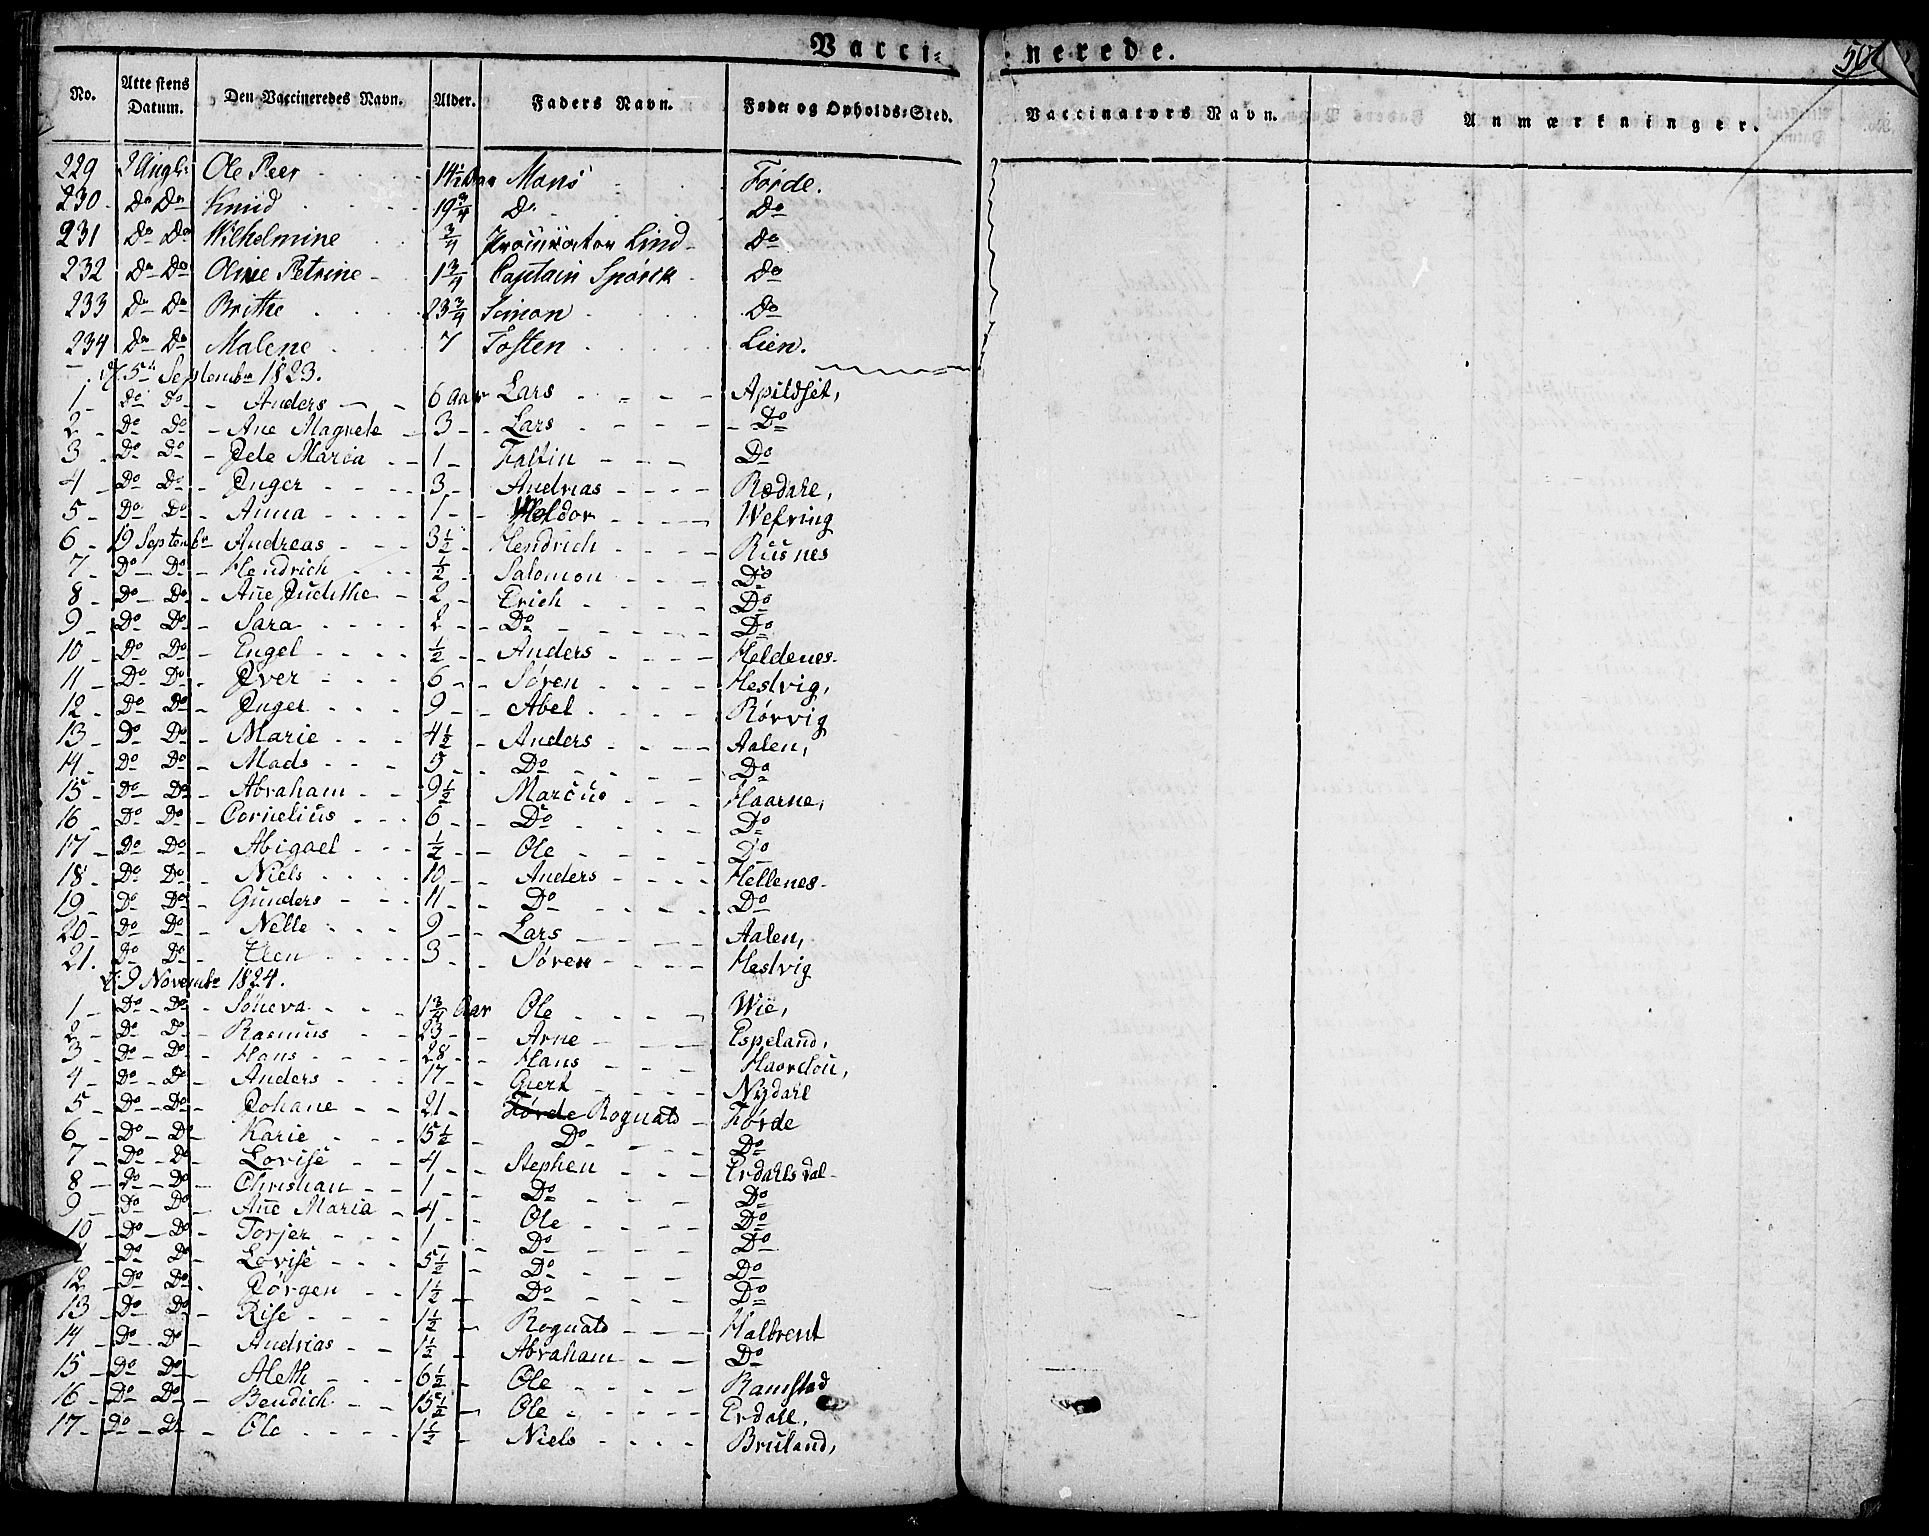 Vacci= nerede.
No. Atte stens Datum. Den Vaccineredes Navn. Alder. Faders Navn. Føde og Opholds=Sted. Vaccinators Navn. Anmærkninger.
229 Ole Peer 14½ Aar Mons Førde.
230 Do Do Knud 19¾ Do Do
231 Do Do Wilhelmine ¾ Procurator Lind Do
232 Do Do Oline Petrine 1¾ Captain Do
233 Do Do Brithe 23¾ Simon Do
234 Do Do Malene 7 Tosten Lien.
5te Septembr 1823.
1 Do Do Anders 6 Aar Lars Apildset,
2 Do Do Ane Magrete 3 Lars Do
3 Do Do Maria 1 Do
4 Do Do Inger 3 Andrias Rødahl,
5 Do Do Anna 1 Wefring
6 19 Septembr Andreas 3½ Hendrich Rusnes
7 Do Do Hendrich ½ Salomon Do
8 Do Do Ane Judithe 2 Erich Do
9 Do Do Sara 2 Do Do
10 Do Do Engel ½ Anders Heldenes
11 Do Do Iver 6 Søren Hestvig,
12 Do Do Inger 9 Abel Rørvig
13 Do Do Marie 4½ Anders Aalen,
14 Do Do Mads 5 Do Do
15 Do Do Abraham 9½ Marcus Haarne,
16 Do Do Cornelius 6 Do Do
17 Do Do Abigael ½ Ole Do
18 Do Do Niels 10 Anders Hellenes
19 Do Do Gunders 11 Do Do
20 Do Do Nelle 9 Lars Aalen,
21. Do Do Elen 3 Søren Hestvig
d: 9 Novembr 1824.
1 Do Do Søneva 1¾ Aar Ole Wie,
2 Do Do Rasmus 23 Arne Espeland,
3 Do Do Hans 28 Hans
4 Do Do Anders 17 Giert Nydahl
5 Do Do Johane 21 Førde Rognald Førde
6 Do Do Karie 15½ Do Do
7 Do Do Lovise 4 Stephen Erdahlsdal
8 Do Do Christian 1 Do Do
9 Do Do Ane Maria 4 Ole Do
10 Do Do Torjer 1 Do Do
Do Do Lovise 5½ Do Do
12 Do Do Jørgen 1½ Do Do
13 Do Do Rise 1½ Rognald Halbrent
14 Do Do Andrias 1½ Abraham Do
15 Do Do Aleth 6½ Ole Ramstad
16 Do Do Bendich 15½ Ole Erdahl,
17 Do Do Ole 1½ Niels Bruland,